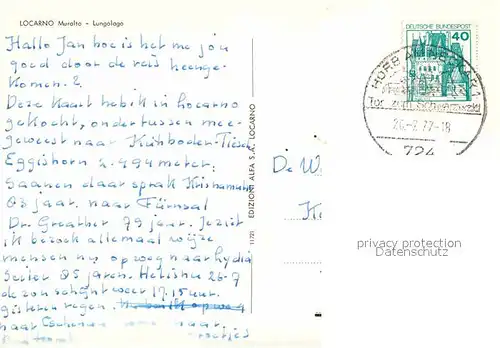 LOCARNO Muralto - Lungolago
Hallo Jan hoe is het me jou
goed door de reis heenge-
komen?
Deze kaart heb ik in Locarno
gekocht, ondertussen mee-
geweest naar Kühboden-Fiesch
Eggishorn 2.494 meter.
Saanen daar sprak Krishamurti
83 jaar. naar Fürnsal
Dr. Greather 79 jaar. Je ziet
ik bezoek allemaal wijze
mensen nu op weg naar Lydia
85 jaren. Het is nu 26-7
de zon schijnt weer 17.15 uur.
gisteren regen.
naar naar
EDIZIONI ALFA S.A., LOCARNO
11/721
DEUTSCHE BUNDESPOST
40
HORB AM NECKAR 1
Tor zum Schwarzwald
26.-7.77-18
724
De
privacy protection
Datenschutz